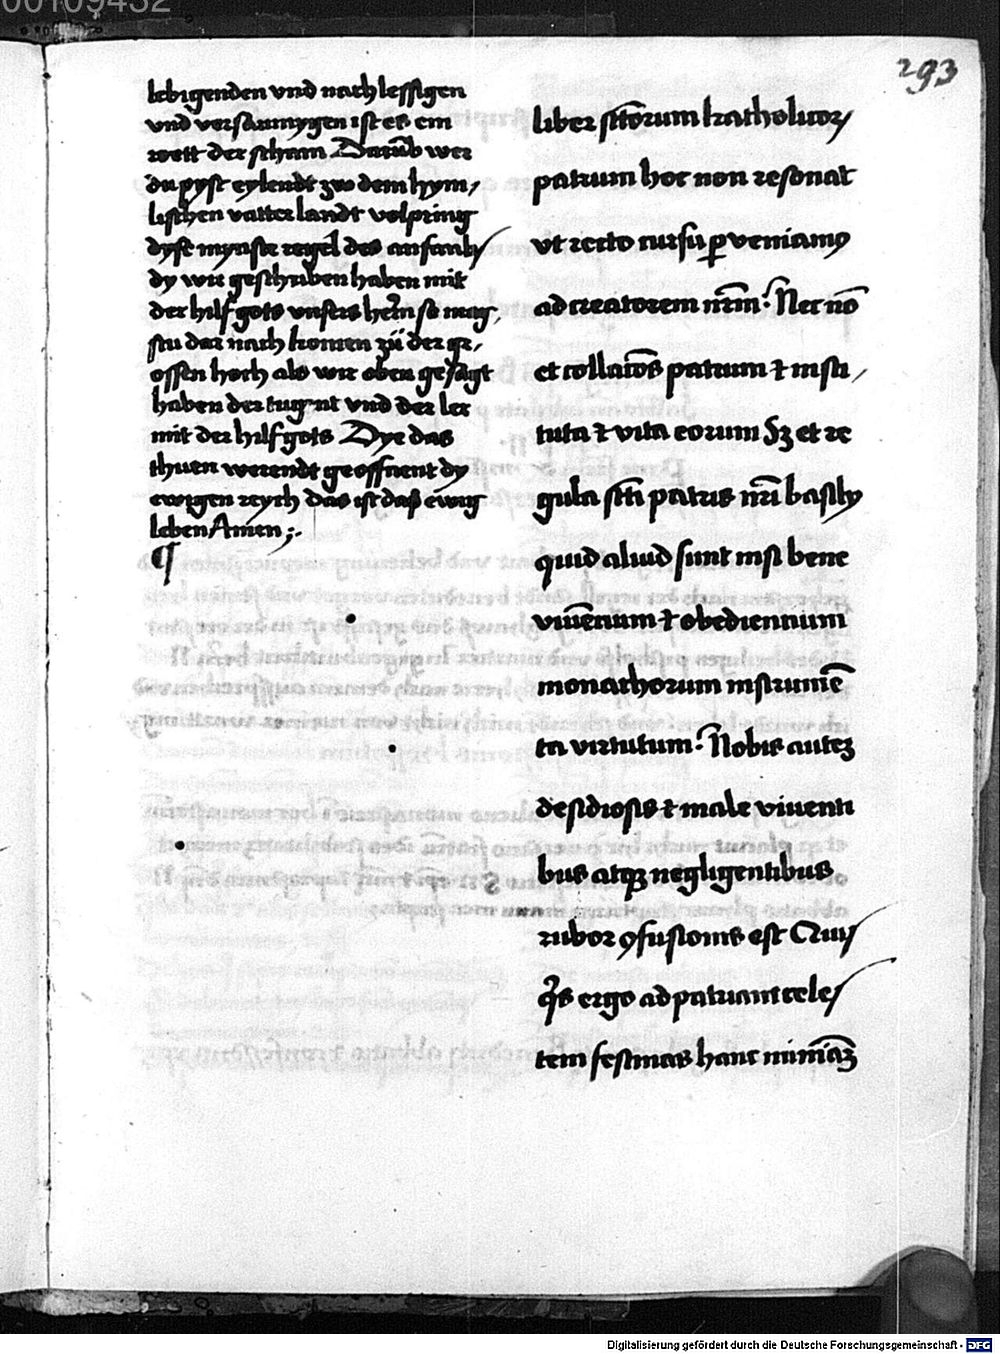 00109432
293
lebigenden vnd nachlessigen
vnd versaumygen ist es ein
rott der scham Darub̄ wer
du pyst eylendt zw dem hym/
lischen vatter landt volpring
dyse mynste regel des anfanḡ
dy wir geschriben haben mit
der hilf gots vnsers hern̄ so mag/
stu dar nach komen zů der gr/
ossen hoch als wir oben gesagt
haben der tugnt vnd der ler
mit der hilf gots Dye das
thuen werendt geoffnent dy
ewigen reych das ist das ewig
leben Amen ;.
¶
liber sctōrum katholicorꝝ
patrum hoc non resonat
vt recto cursu ꝑveniamꝰ
ad creatorem nrm̄ : Nec nō
et collacōēs patrum ⁊ insti/
tuta ⁊ vita eorum Sꝫ et re
gula scti̅ patris nri̅ basily
quid aliud sunt nisi bene
viuēcium ⁊ obediencium
monachorum instrumē
ta virtutum : Nobis auteꝫ
desidiosis ⁊ male viuenti
bus atqꝫ negligentibus
rubor ꝯfusionis est Quis
qͥs ergo ad patriam celes
tem festinas hanc minīaꝫ
Digitalisierung gefördert durch die Deutsche Forschungsgemeinschaft - DFG